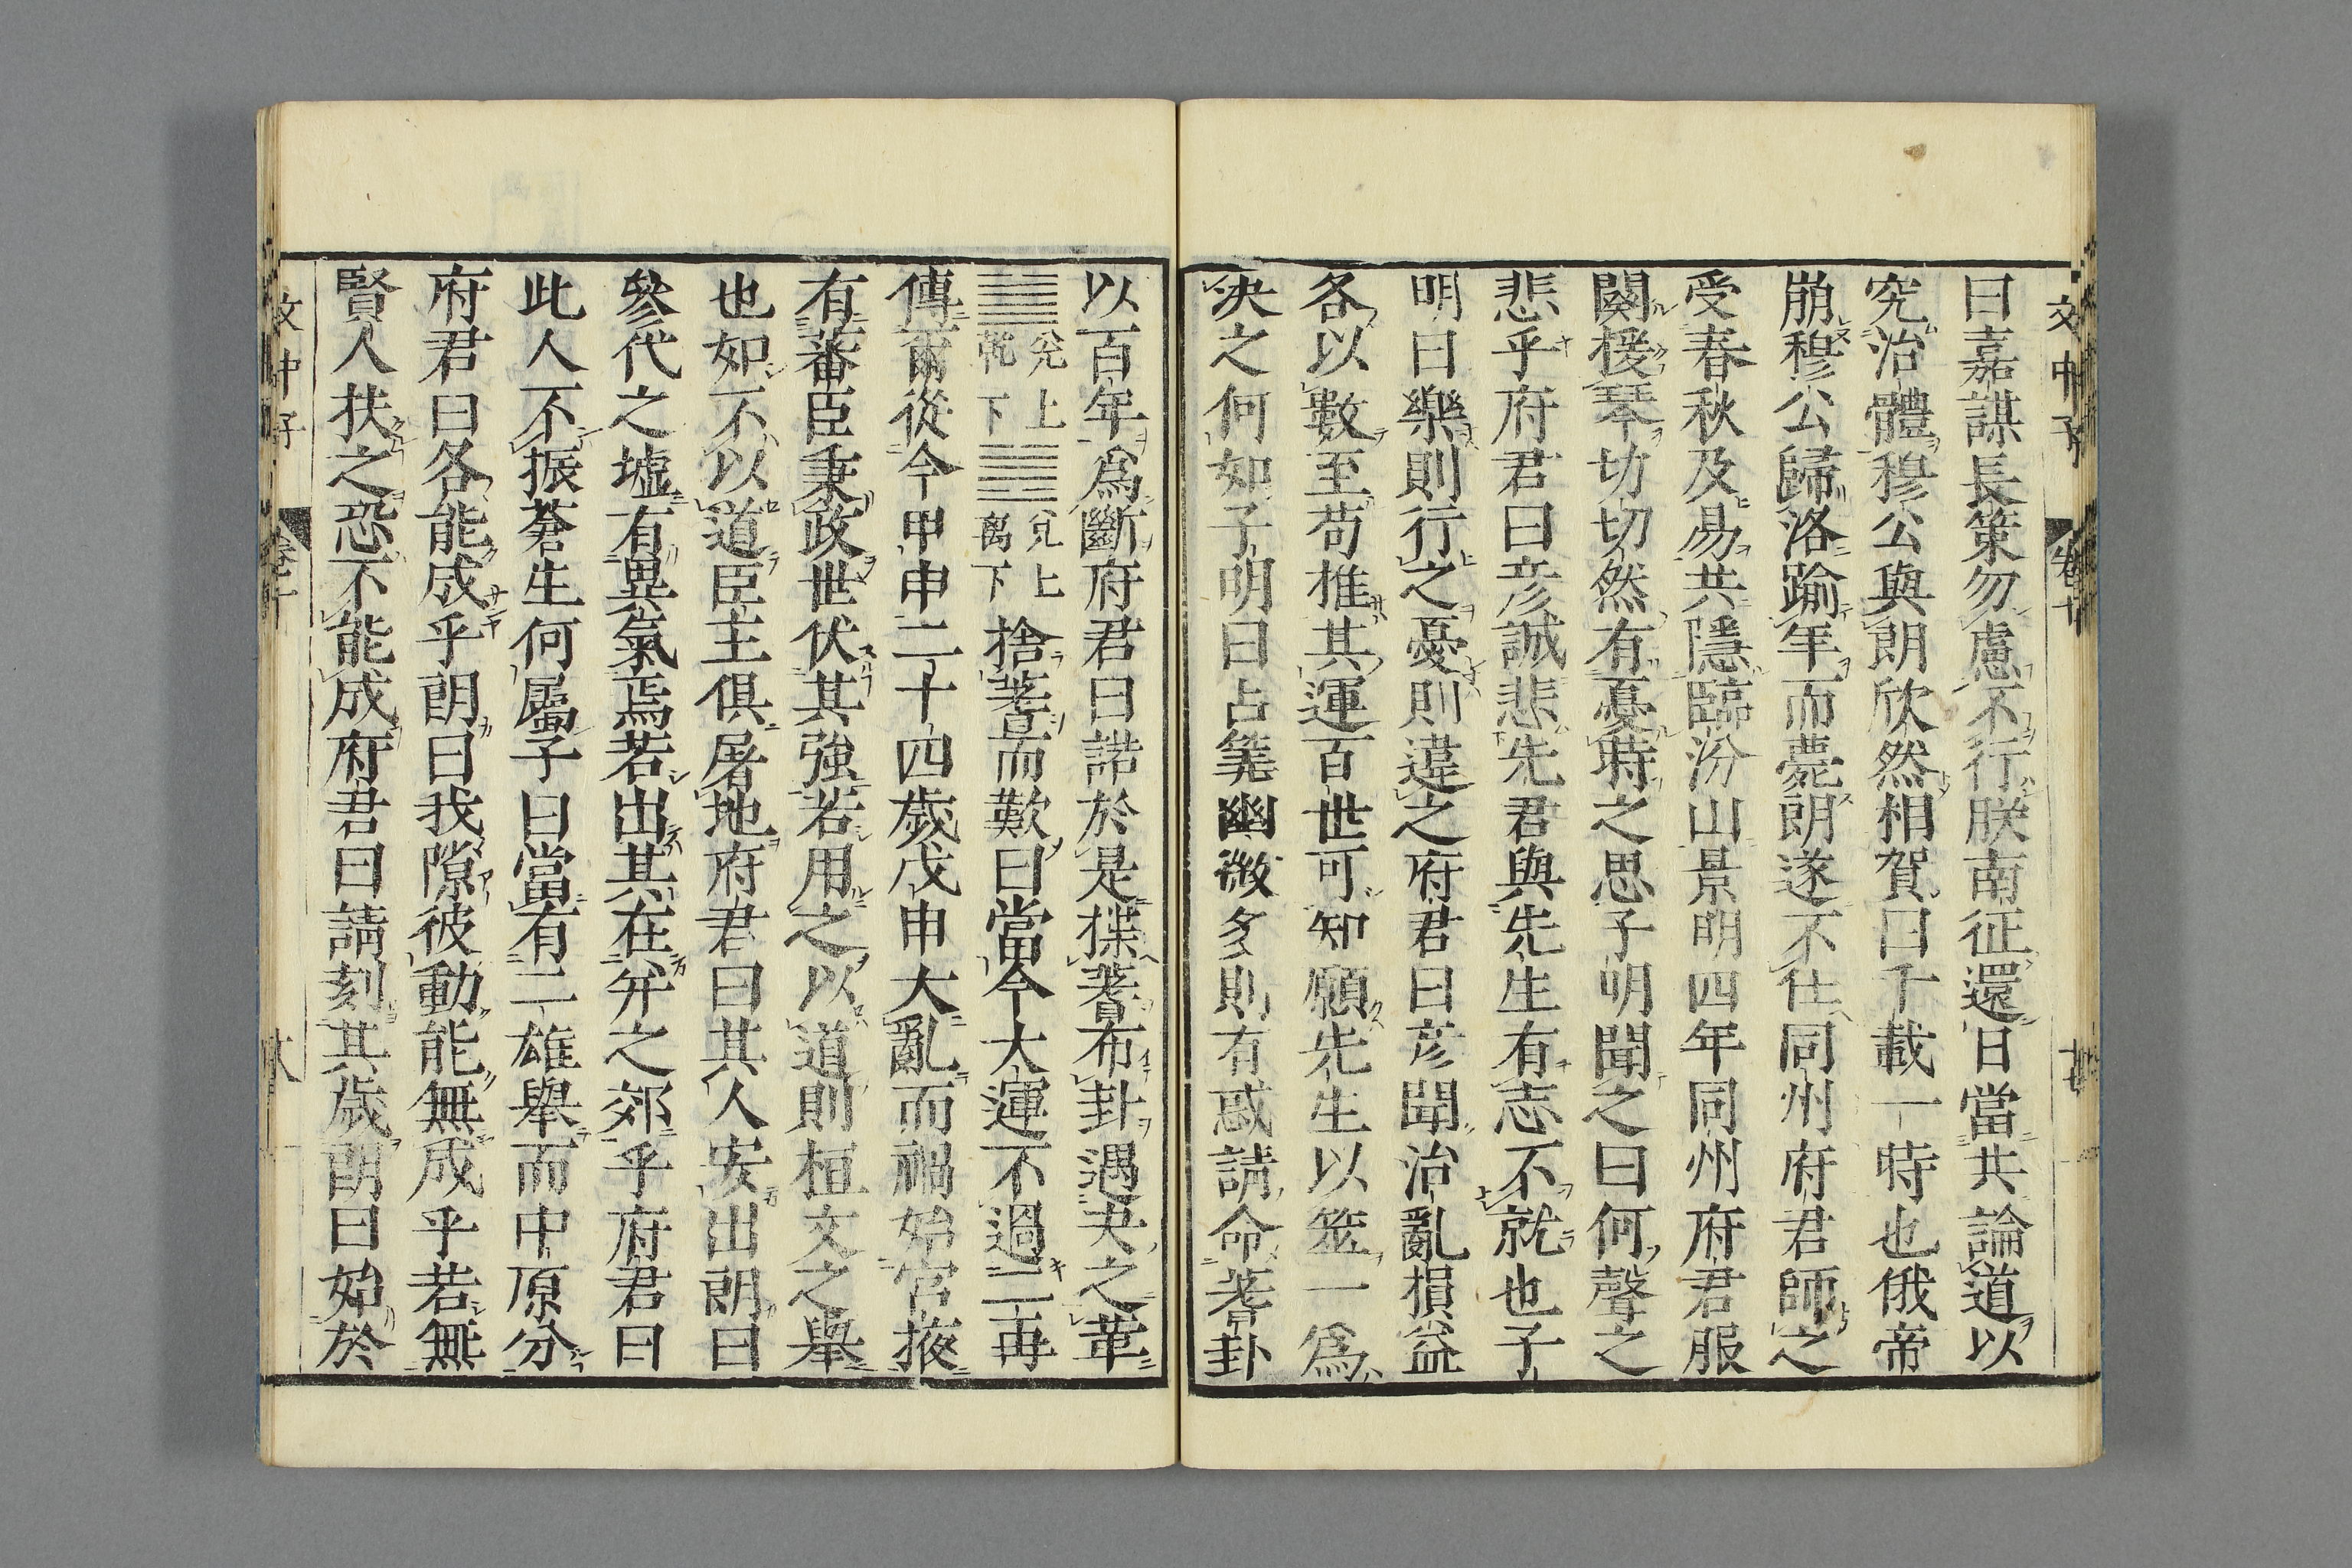 文中子 卷十
曰嘉謀長策勿慮不行朕南征還日當共論道以
究治體穆公與朗欣然相賀曰千載一時也俄帝
崩穆公歸洛踰年而薨朗遂不仕同州府君師之
受春秋及易共隱臨汾山景明四年同州府君服
闋援琴切切然有憂時之思子明聞之曰何聲之
悲乎府君曰彦誠悲先君與先生有志不就也子
明曰樂則行之憂則違之府君曰彦聞治亂損益
各以數至苟推其運百世可知願先生以筮一爲
决之何如子明曰占筭幽微多則有惑請命蓍卦
以百年爲斷府君曰諾於是揲蓍布卦遇夬之革
兌上乾下 兌上離下 捨蓍而歎曰當今大運不過二再
傳爾從今甲申二十四歲戊申大亂而禍始宮掖
有蕃臣秉政世伏其強若用之以道則桓文之舉
也如不以道臣主俱屠地府君曰其人安出朗曰
參代之墟有異氣焉若出其在并之郊乎府君曰
此人不振蒼生何屬子曰當有二雄舉而中原分
府君曰各能成乎朗曰我隙彼動能無成乎若無
賢人扶之恐不能成府君曰請刻其歲朗曰始於
文中子 卷十